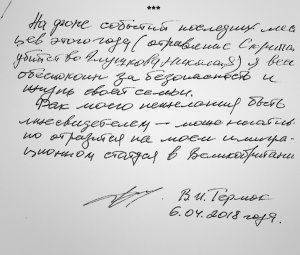 ***
На фоне событий последних меся
цев этого года (отравление Скрипа
убийство Глушкова Николая) я весь
обеспокоен за безопасность и
жизнь своей семьи.
Факт моего нежелания быть
лжесвидетелем — может негатив
но отразится на моем иммигра
ционном статусе в Великобритани
В.И. Терлюк
6.04.2018 года.